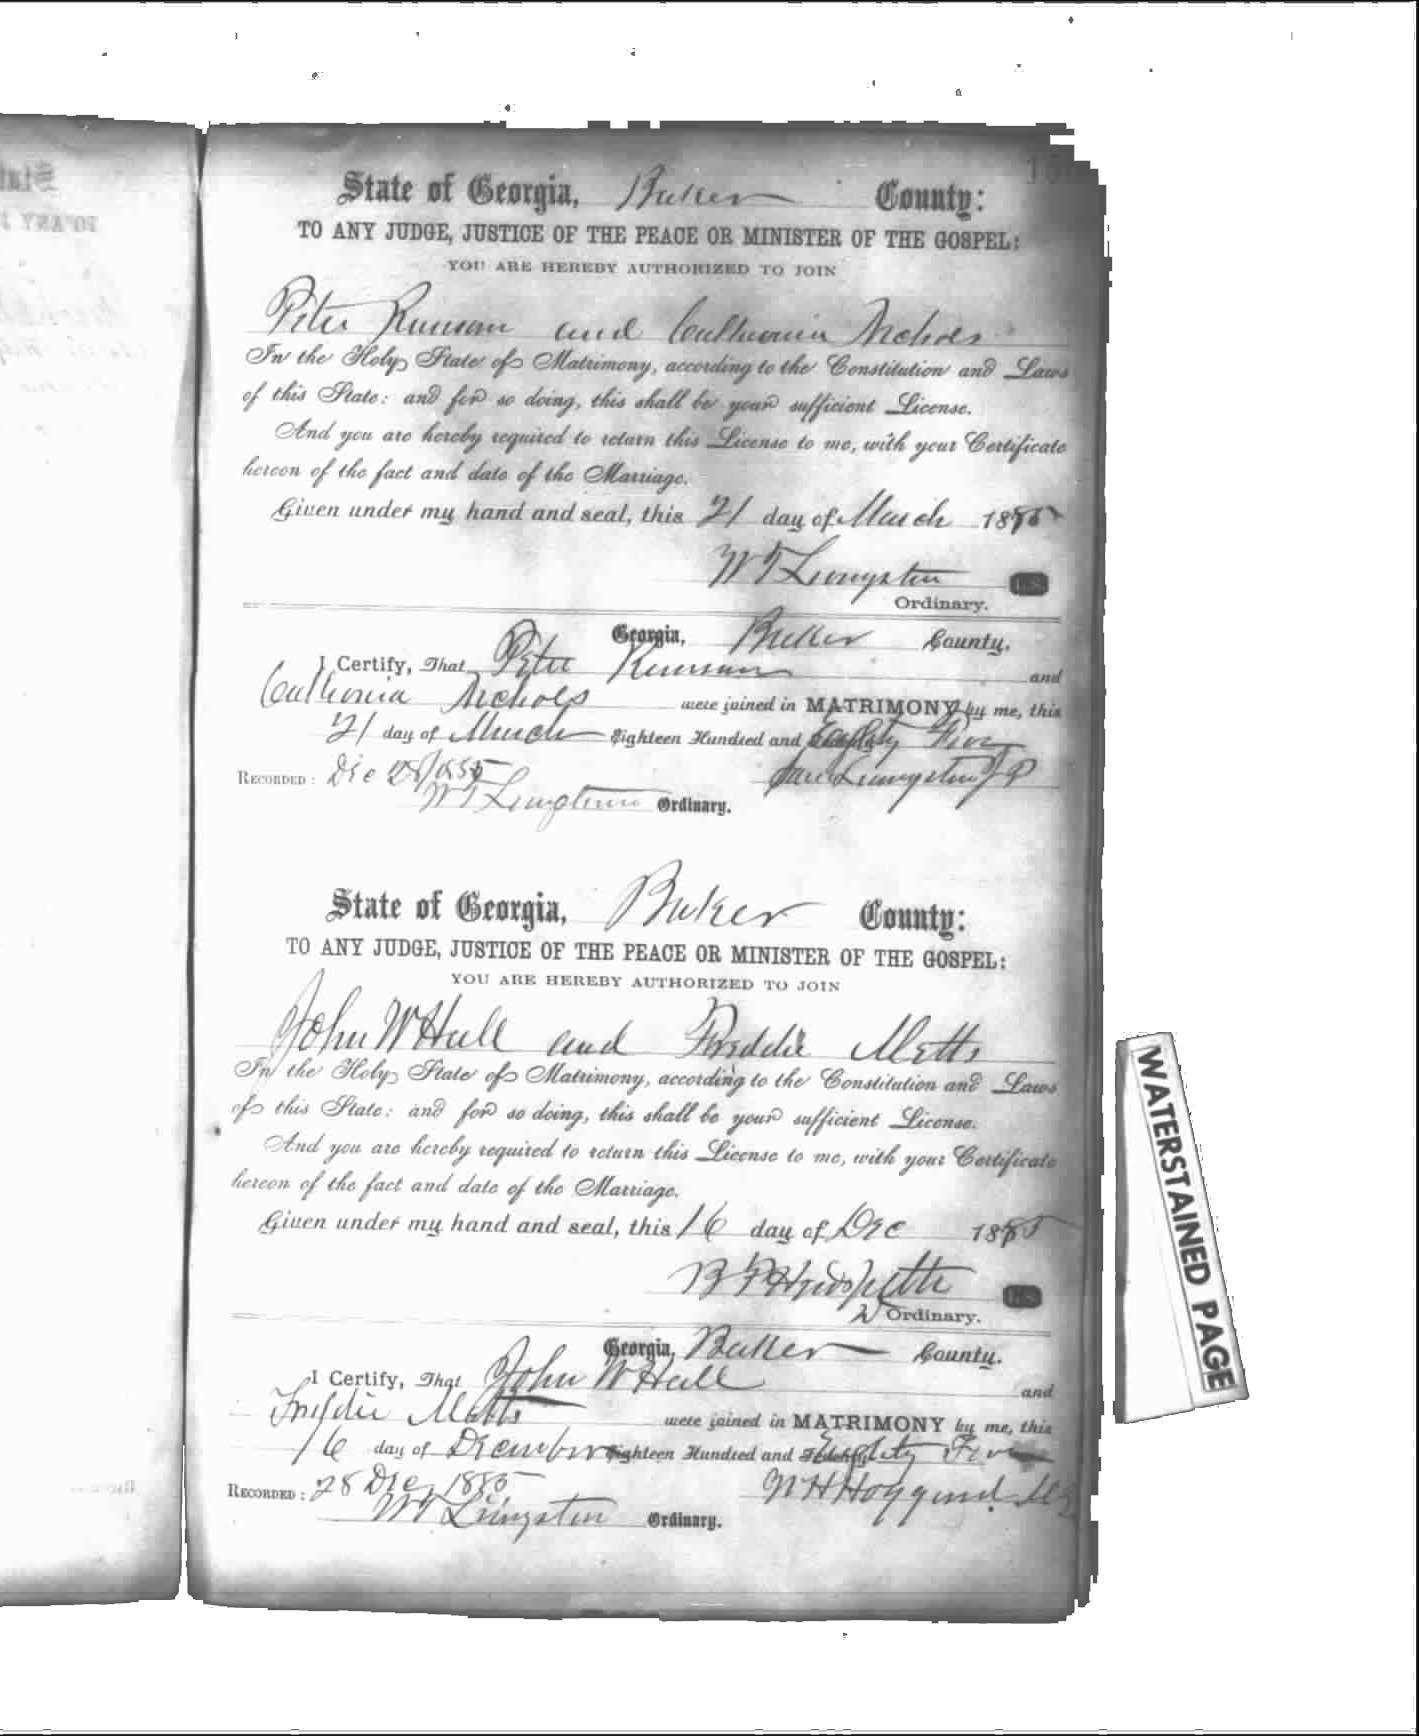 State of Georgia, Baker County:
TO ANY JUDGE, JUSTICE OF THE PEACE OR MINISTER OF THE GOSPEL:
YOU ARE HEREBY AUTHORIZED TO JOIN
Peter and Nichols
In the Holy State of Matrimony, according to the Constitution and Laws
of this State: and for so doing, this shall be your sufficient License.
And you are hereby required to return this License to me, with your Certificate
hereon of the fact and date of the Marriage.
Given under my hand and seal, this 21 day of March 1885
W T Livingston L.S.
Ordinary.
Georgia, Baker County.
I Certify, That Peter and
Nichols were joined in MATRIMONY by me, this
21 day of March Eighteen Hundred and Eighty Five
RECORDED: Dec 28/1885 Livingston J P
W T Livingston Ordinary.
State of Georgia, Baker County:
TO ANY JUDGE, JUSTICE OF THE PEACE OR MINISTER OF THE GOSPEL:
YOU ARE HEREBY AUTHORIZED TO JOIN
John W Hall and Freddie Metts
In the Holy State of Matrimony, according to the Constitution and Laws
of this State: and for so doing, this shall be your sufficient License.
And you are hereby required to return this License to me, with your Certificate
hereon of the fact and date of the Marriage.
Given under my hand and seal, this 16 day of Dec 1885
B F Hudspeth L.S.
Ordinary.
Georgia, Baker County.
I Certify, That John W Hall and
Freddie Metts were joined in MATRIMONY by me, this
16 day of December Eighteen Hundred and Eighty Five
RECORDED: 28 Dec 1885 W H
W T Livingston Ordinary.
WATERSTAINED PAGE